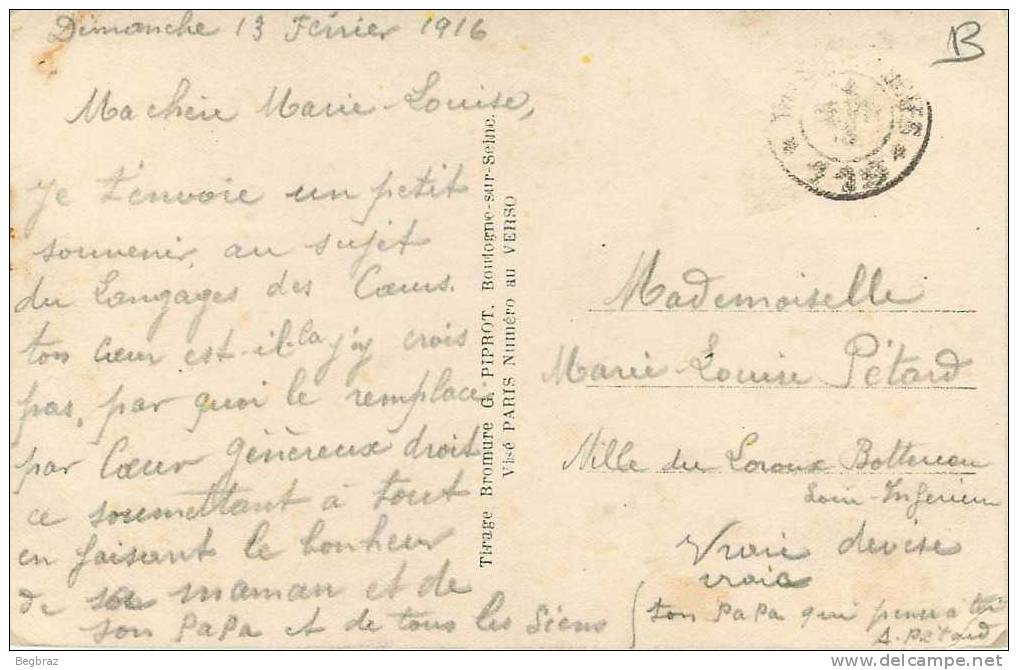 Dimanche 13 Février 1916
B
Ma chère Marie-Louise,
Je t'envoie un petit
souvenir, au sujet
du Langages des Cœurs.
ton cœur est-il la j'y crois
pas, par quoi le remplace
par Cœur généreux droit
ce soumettant à tout
en faisant le bonheur
de sa maman et de
son PaPa et de tous les Siens
Tirage Bromure G. PIPROT. Boulogne-sur-Seine.
Visé PARIS Numéro au VERSO
Mademoiselle
Marie Louise Pétard
Ville du Loroux Bottereau
Loire-Inferieure
Vraie devise
vraie
ton PaPa qui pense à toi
A. Pétard
Begbraz
www.delcampe.net